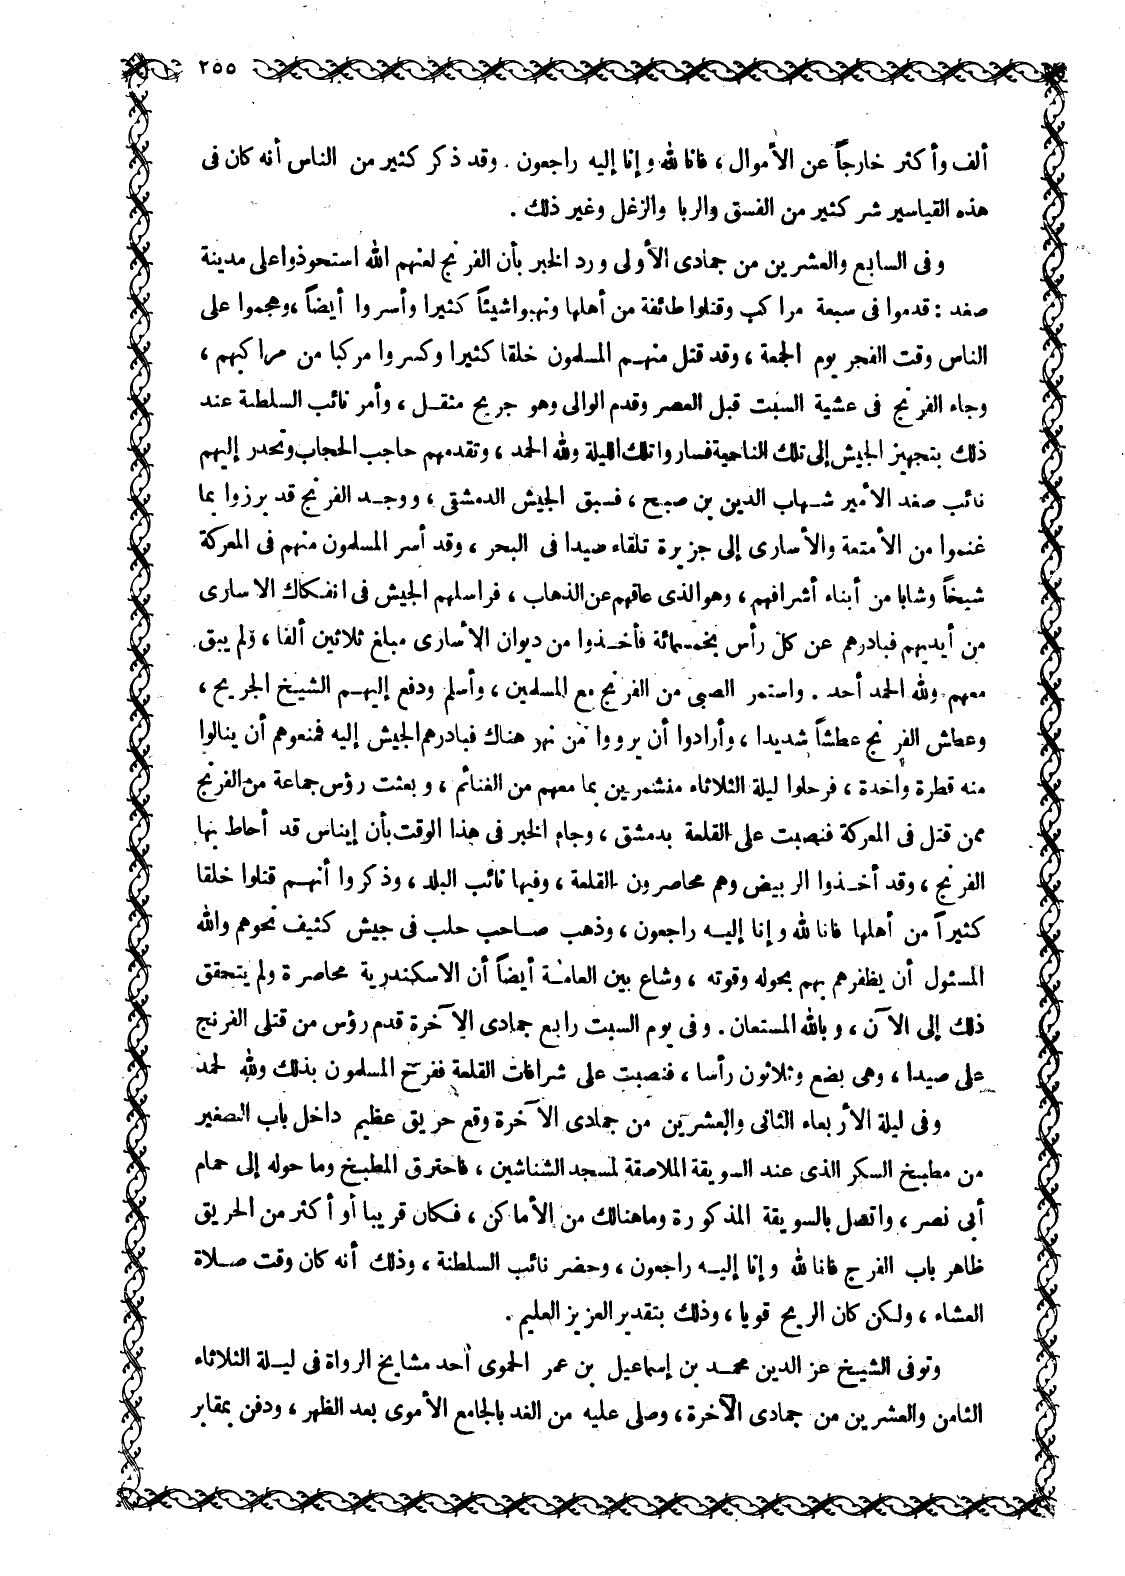 ٢٥٥
ألف وأكثر خارجاً عن الأموال ، فانا لله وإنا إليه راجعون . وقد ذكر كثير من الناس أنه كان فى
هذه القياسير شر كثير من الفسق والربا والزغل وغير ذلك .
وفى السابع والعشرين من جمادى الأولى ورد الخبر بأن الفرنج لعنهم الله استحوذوا على مدينة
صفد : قدموا فى سبعة مراكب وقتلوا طائفة من أهلها ونهبوا شيئاً كثيرا وأسروا أيضاً ، وهجموا على
الناس وقت الفجر يوم الجمعة ، وقد قتل منهم المسلمون خلقا كثيرا وكسروا مركبا من مراكبهم ،
وجاء الفرنج فى عشية السبت قبل العصر وقدم الوالى وهو جريح مثقل ، وأمر نائب السلطنة عند
ذلك بتجهيز الجيش إلى تلك الناحية فساروا تلك الليلة ولله الحمد ، وتقدمهم حاجب الحجاب وتحدر إليهم
نائب صفد الأمير شهاب الدين بن صبح ، فسبق الجيش الدمشقى ، ووجد الفرنج قد برزوا بما
غنموا من الأمتعة والأسارى إلى جزيرة تلقاء صيدا فى البحر ، وقد أسر المسلمون منهم فى المعركة
شيخاً وشابا من أبناء أشرافهم ، وهو الذى عاقهم عن الذهاب ، فراسلهم الجيش فى انفكاك الاسارى
من أيديهم فبادرهم عن كل رأس بخمسمائة فأخذوا من ديوان الأسارى مبلغ ثلاثين ألفا ، ولم يبق
معهم ولله الحمد أحد . واستمر الصبى من الفرنج مع المسلمين ، وأسلم ودفع إليهم الشيخ الجريح ،
وعطش الفرنج عطشاً شديدا ، وأرادوا أن يرووا من نهر هناك فبادرهم الجيش إليه فمنعوهم أن ينالوا
منه قطرة واحدة ، فرحلوا ليلة الثلاثاء منشمرين بما معهم من الغنائم ، وبعثت رؤس جماعة من الفرنج
ممن قتل فى المعركة فنصبت على القلعة بدمشق ، وجاء الخبر فى هذا الوقت بأن إيناس قد أحاط بها
الفرنج ، وقد أخذوا الربيض وهم محاصرون القلعة ، وفيها نائب البلد ، وذكروا أنهم قتلوا خلقا
كثيراً من أهلها فانا لله وإنا إليه راجعون ، وذهب صاحب حلب فى جيش كثيف نحوهم والله
المسئول أن يظفرهم بهم بحوله وقوته ، وشاع بين العامة أيضاً أن الاسكندرية محاصرة ولم يتحقق
ذلك إلى الآن ، وبالله المستعان . وفى يوم السبت رابع جمادى الآخرة قدم رؤس من قتلى الفرنج
على صيدا ، وهى بضع وثلاثون رأسا ، فنصبت على شرافات القلعة ففرح المسلمون بذلك ولله الحمد
وفى ليلة الأربعاء الثانى والعشرين من جمادى الآخرة وقع حريق عظيم داخل باب الصغير
من مطبخ السكر الذى عند السويقة الملاصقة لمسجد الشناشين ، فاحترق المطبخ وما حوله إلى حمام
أبى نصر ، واتصل بالسويقة المذكورة وما هنالك من الأماكن ، فكان قريبا أو أكثر من الحريق
ظاهر باب الفرج فانا لله وإنا إليه راجعون ، وحضر نائب السلطنة ، وذلك أنه كان وقت صلاة
العشاء ، ولكن كان الريح قويا ، وذلك بتقدير العزيز العليم .
وتوفى الشيخ عز الدين محمد بن إسماعيل بن عمر الحموى أحد مشايخ الرواة فى ليلة الثلاثاء
الثامن والعشرين من جمادى الآخرة ، وصلى عليه من الغد بالجامع الأموى بعد الظهر ، ودفن بمقابر